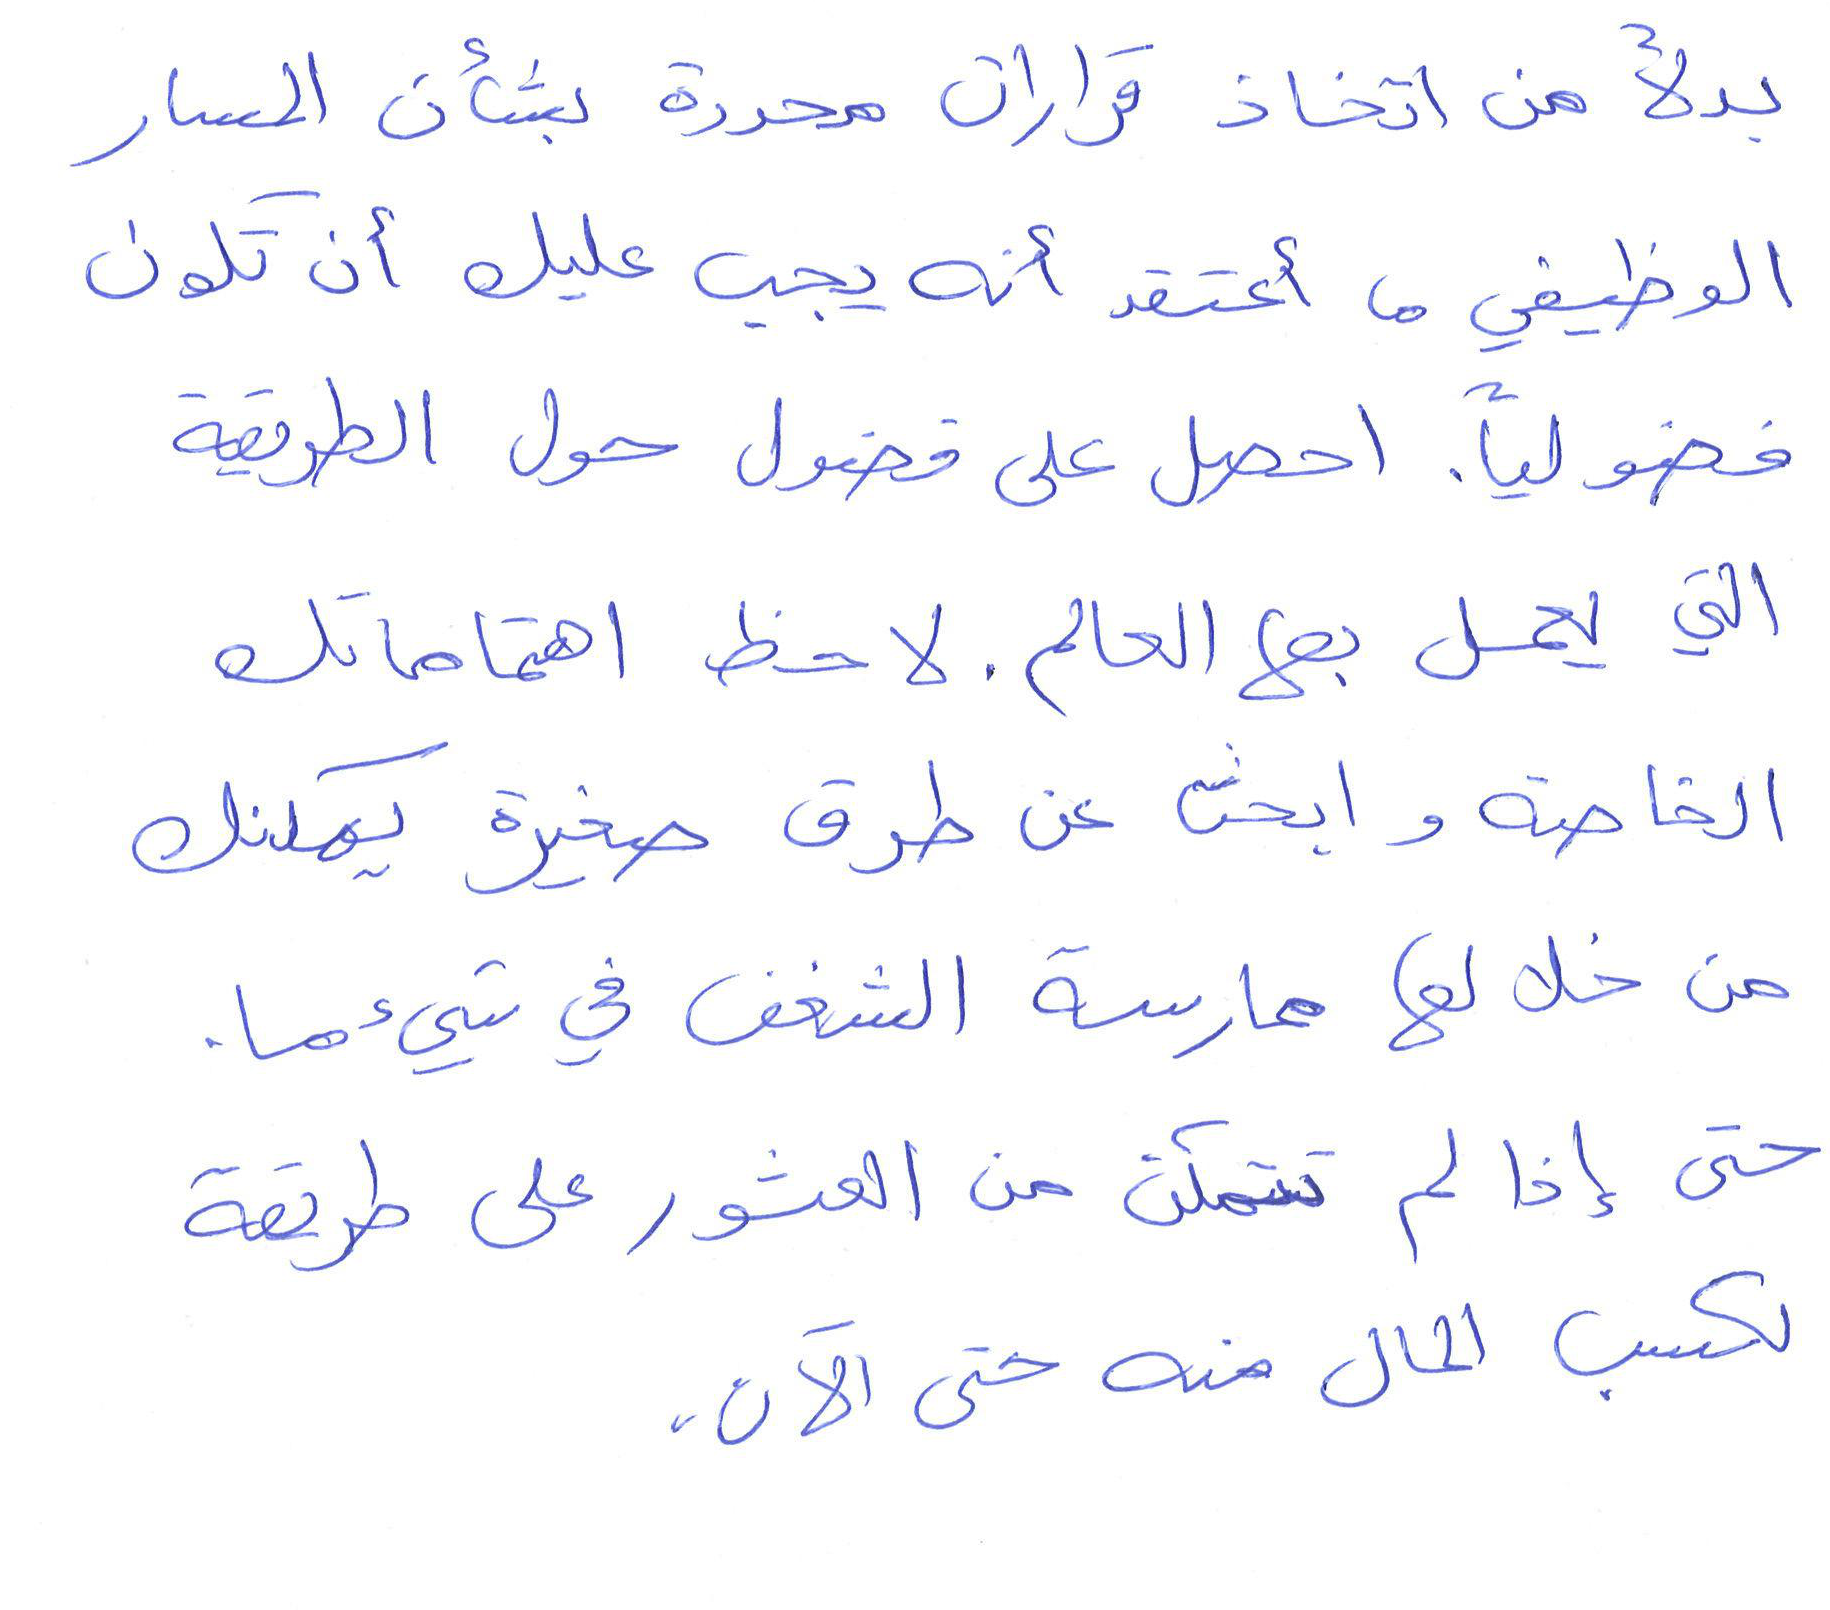 بدلاً من اتخاذ قرارات محددة بشأن المسار
الوظيفي ما أعتقد أنه يجب عليك أن تكون
فضولياً. احصل على فضول حول الطريقة
التي يعمل بها العالم. لاحظ اهتماماتك
الخاصة وابحث عن طرق صغيرة يمكنك
من خلالها ممارسة الشغف في شيء ما.
حتى إذا لم تتمكن من العثور على طريقة
لكسب المال منه حتى الآن.